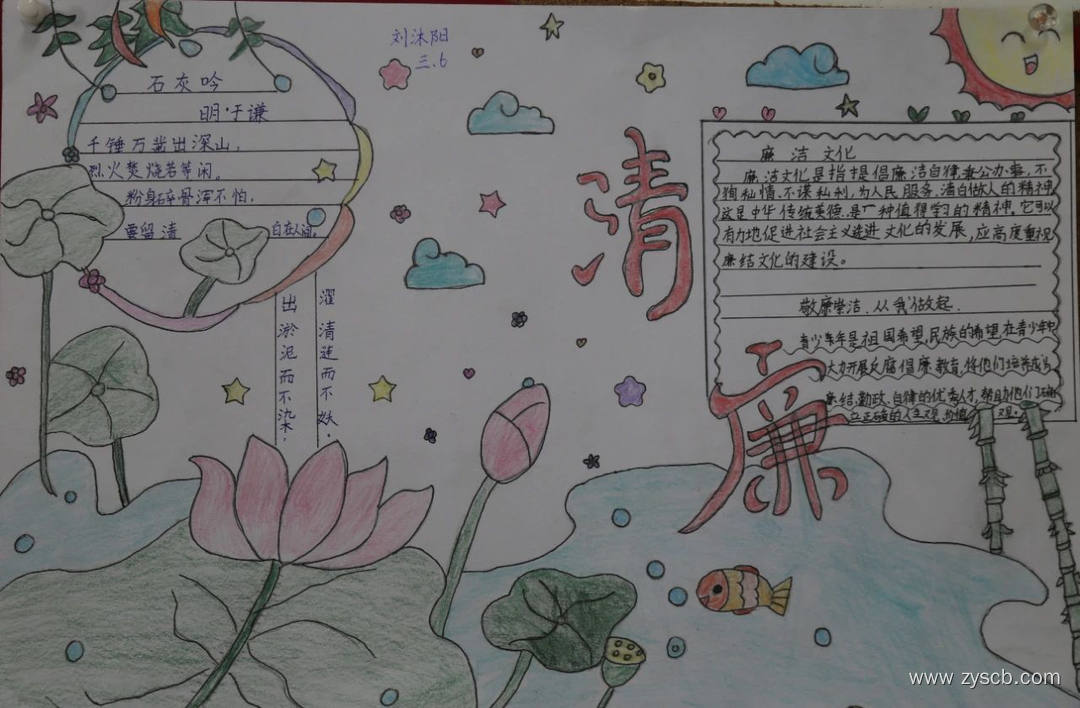 刘沐阳
三.6
石灰吟
明·于谦
千锤万凿出深山,
烈火焚烧若等闲。
粉身碎骨浑不怕,
要留清
白在人间。
濯清莲而不妖,
出淤泥而不染.
清
廉
廉洁文化
廉洁文化是指是倡廉洁自律,奉公办事,不
狥私情,不谋私利,为人民服务,清白做人的精神
这是中华传统美德,是一种值得学习的精神,它可以
有力地促进社会主义进文化的发展,应高度重视
廉结文化的建设。
敬廉崇洁,从我做起.
青少年年是祖国希望,民族的希望,在青少年中
大力开展反腐倡廉教育,将他们培养成为
廉结,勤政,自律的优秀人才,帮助他们
立正确的人生观,价值观.
www.zyscb.com